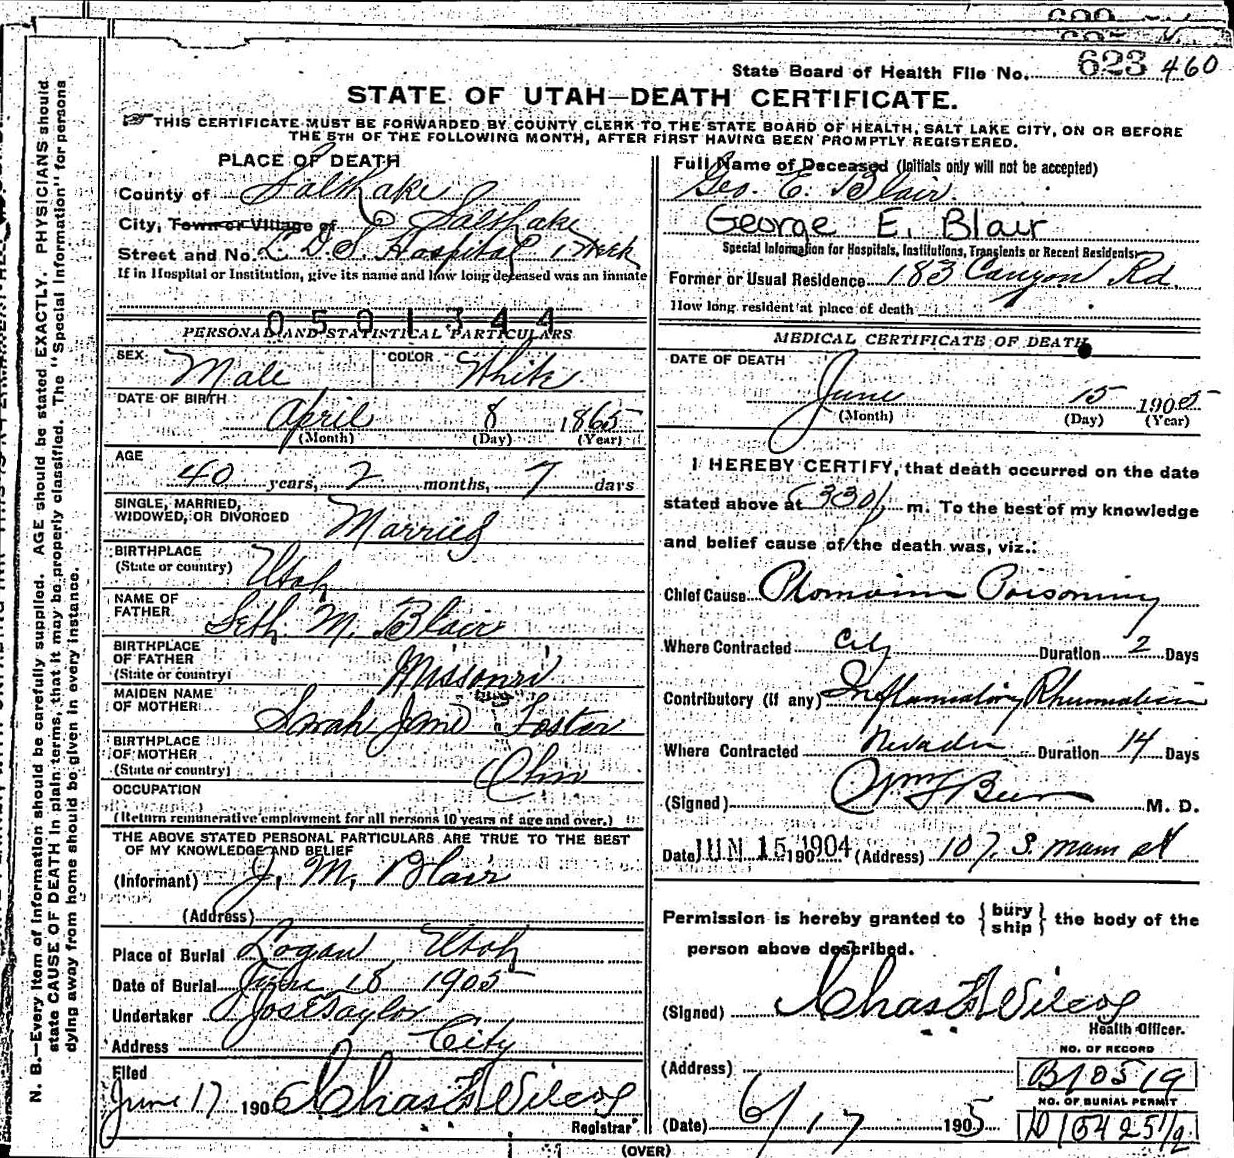 State Board of Health File No. 623 460
STATE OF UTAH—DEATH CERTIFICATE.
THIS CERTIFICATE MUST BE FORWARDED BY COUNTY CLERK TO THE STATE BOARD OF HEALTH, SALT LAKE CITY, ON OR BEFORE
THE 5TH OF THE FOLLOWING MONTH, AFTER FIRST HAVING BEEN PROMPTLY REGISTERED.
N. B.—Every item of information should be carefully supplied. AGE should be stated EXACTLY. PHYSICIANS should
state CAUSE OF DEATH in plain terms, that it may be properly classified. The "Special Information" for persons
dying away from home should be given in every instance.
PLACE OF DEATH
County of Salt Lake
City, Town or Village of Salt Lake
Street and No. L. D. S. Hospital 1 Week
If in Hospital or Institution, give its name and how long deceased was an inmate
0501344
PERSONAL AND STATISTICAL PARTICULARS
SEX Male COLOR White
DATE OF BIRTH April 8 1865
(Month) (Day) (Year)
AGE
40 years, 2 months, 7 days
SINGLE, MARRIED,
WIDOWED, OR DIVORCED Married
BIRTHPLACE
(State or country) Utah
NAME OF
FATHER Seth M. Blair
BIRTHPLACE
OF FATHER
(State or country) Missouri
MAIDEN NAME
OF MOTHER Sarah Jane Foster
BIRTHPLACE
OF MOTHER
(State or country) Ohio
OCCUPATION
(Return remunerative employment for all persons 10 years of age and over.)
THE ABOVE STATED PERSONAL PARTICULARS ARE TRUE TO THE BEST
OF MY KNOWLEDGE AND BELIEF
(Informant) J. M. Blair
(Address)
Place of Burial Logan Utah
Date of Burial June 18 1905
Undertaker Jos E Taylor
Address City
Filed
June 17 190 Chas F Wilcox
Registrar
Full Name of Deceased (Initials only will not be accepted)
Geo. E. Blair
George E. Blair
Special Information for Hospitals, Institutions, Transients or Recent Residents
Former or Usual Residence 183 Canyon Rd.
How long resident at place of death
MEDICAL CERTIFICATE OF DEATH
DATE OF DEATH
June 15 1905
(Month) (Day) (Year)
I HEREBY CERTIFY, that death occurred on the date
stated above at 330 m. To the best of my knowledge
and belief cause of the death was, viz.:
Chief Cause Ptomaine Poisoning
Where Contracted City Duration 2 Days
Contributory (if any) Inflammatory Rheumatism
Where Contracted Nevada Duration 14 Days
(Signed) M. D.
Date JUN 15 1904 190 (Address) 107 S. Main St
Permission is hereby granted to {bury ship} the body of the
person above described.
(Signed) Chas F Wilcox
Health Officer.
(Address)
NO. OF RECORD
B10519
(Date) 6/17 1905
NO. OF BURIAL PERMIT
(OVER)